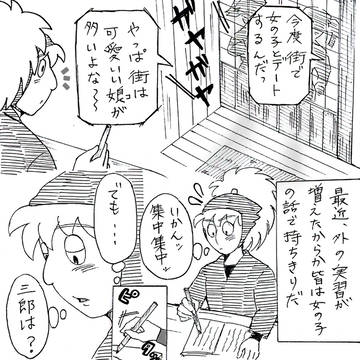 今度街で
女の子とデート
するんだっ
やっぱ街は
可愛いい娘が
多いよな～
最近、外の実習が
増えたからか皆は女の子
の話で持ちきりだ
いかんッ
集中集中ッ
でも・・・
ピタ
三郎は？